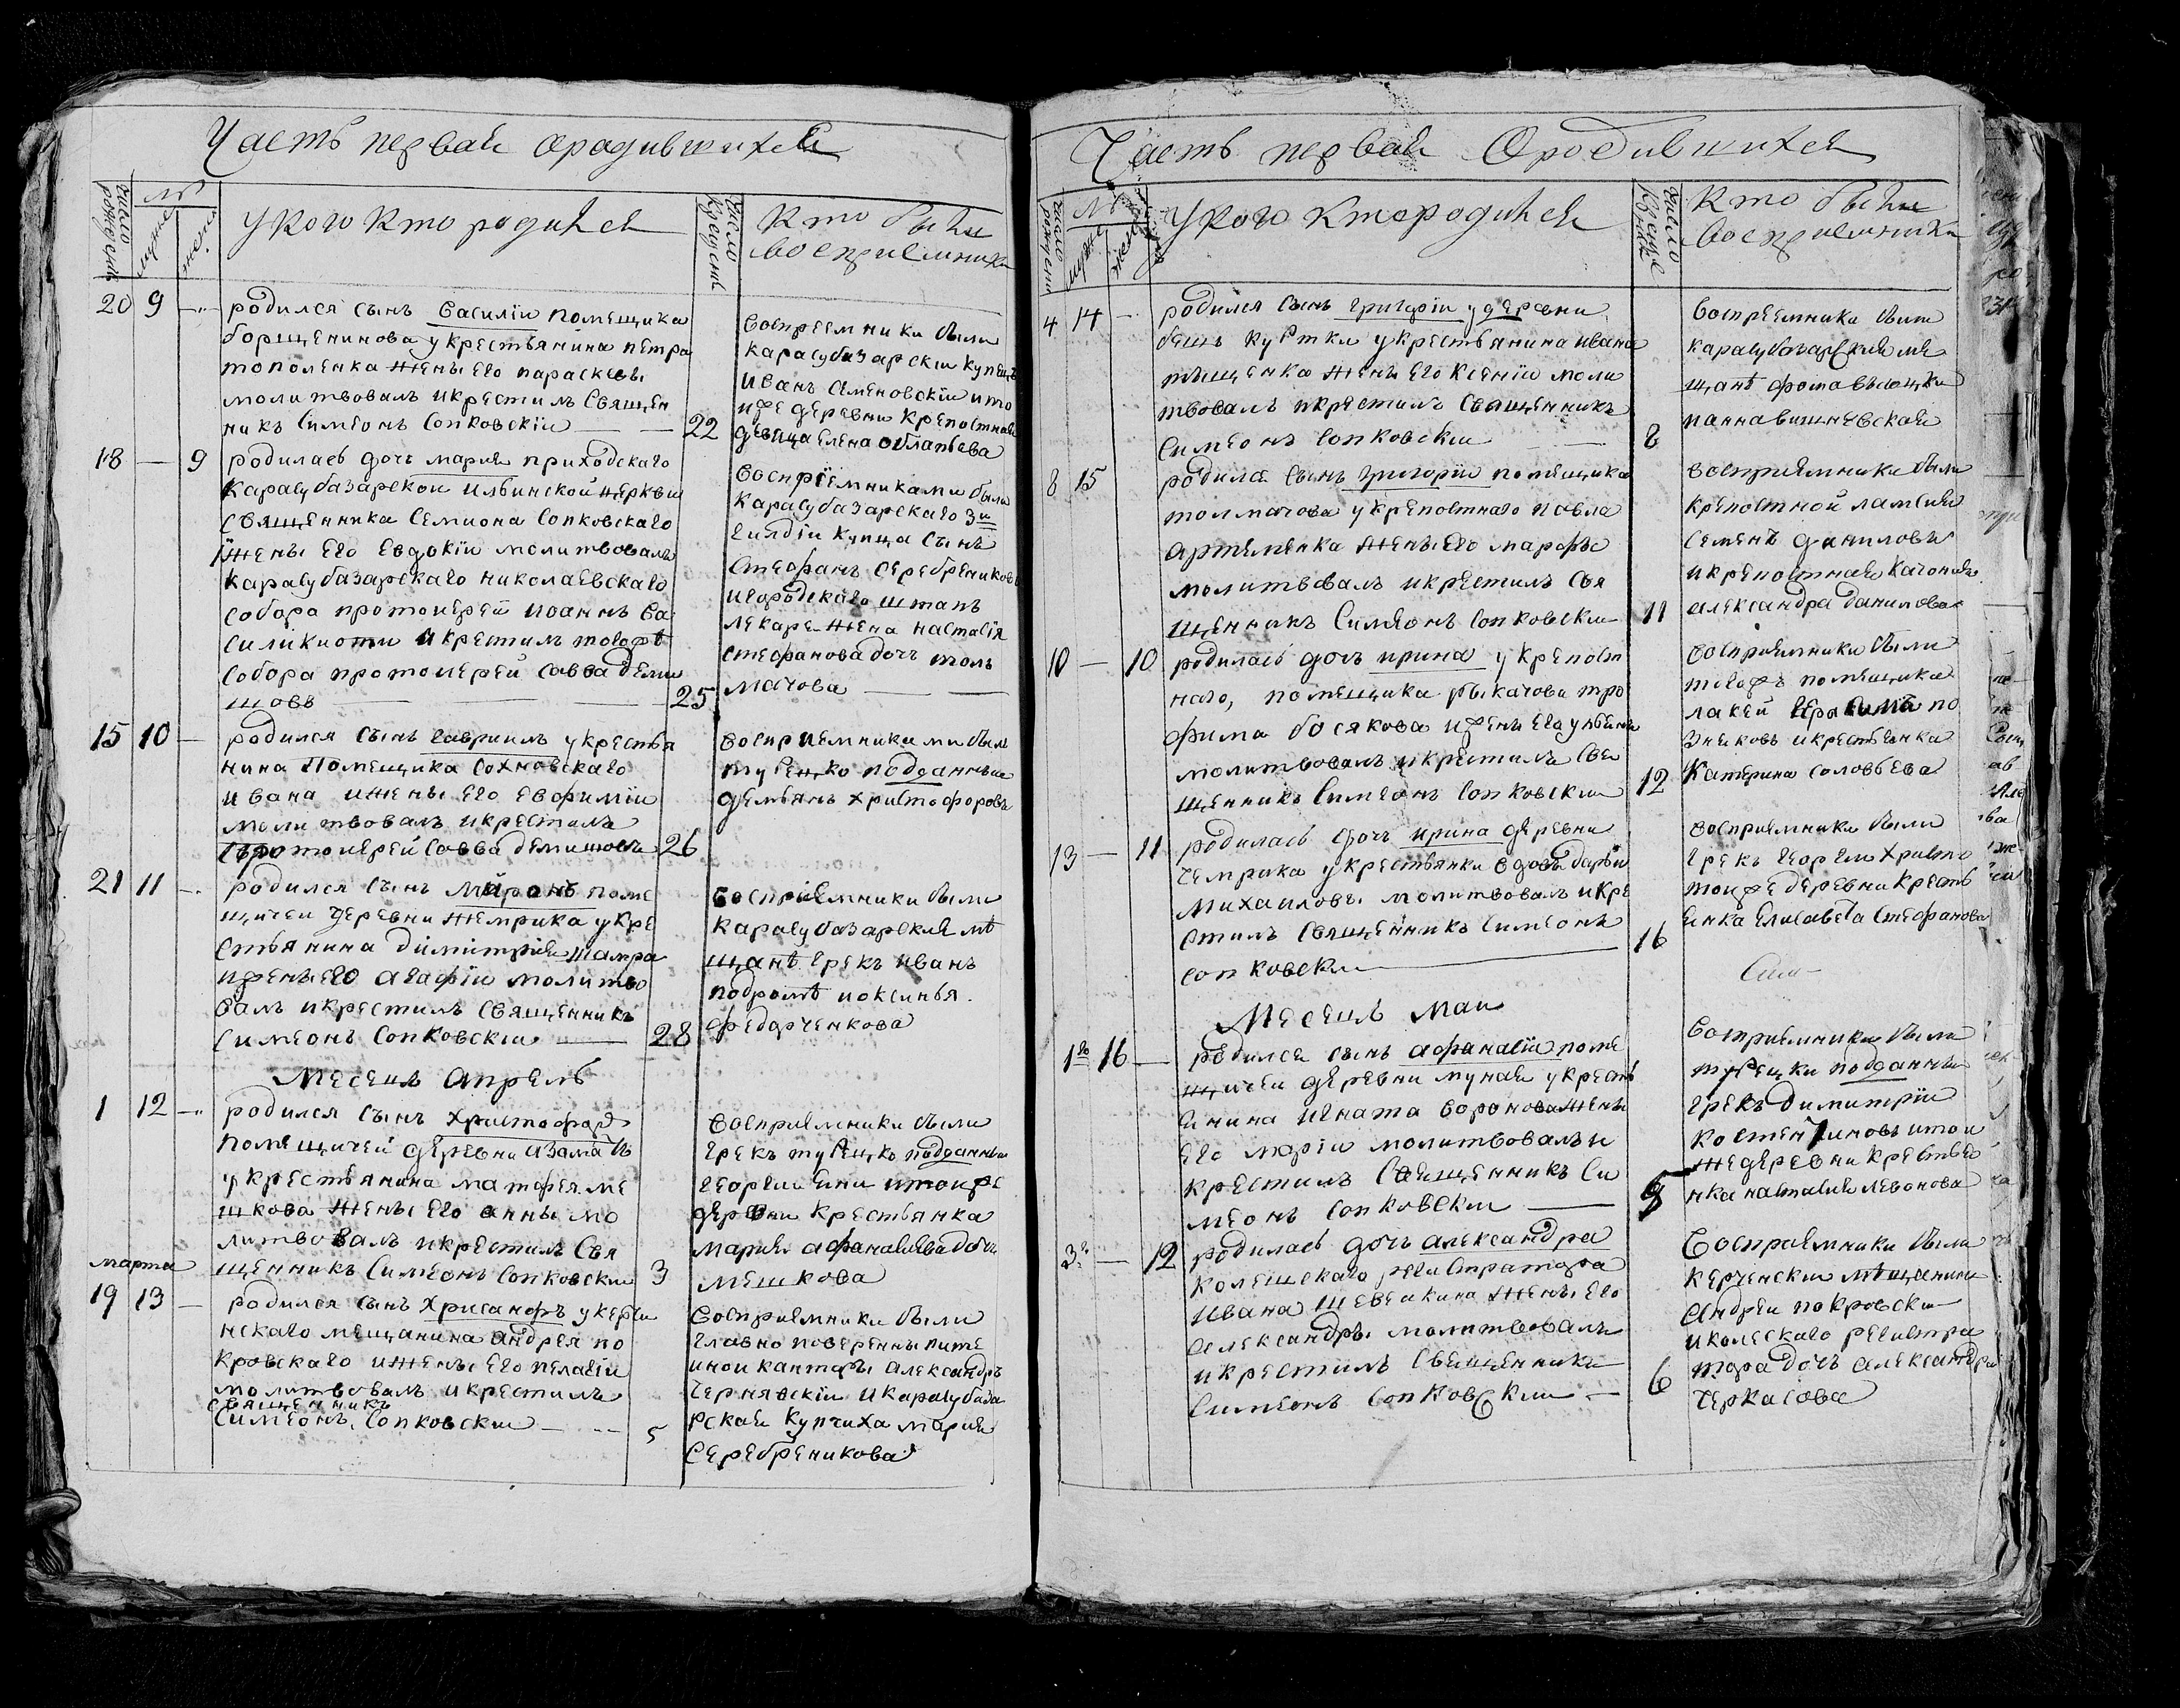 Часть первая ородившихся
число рожденїя
№
мужес
женс
укого кто родился
число крещенїя
кто были
воспрїемники
20 9 родился сынъ Василіи помещика
борщенинова укрестьянина петра
тополенка жены его параскевы
молитвовалъ икрестилъ Священ
никъ Симеонъ Сопковскїи
22
Воспреемники были
карасубазарскїи купецъ
Иванъ Семеновскїи ито
иже деревни крепостная
девица елена
18 9 родилась дочь мария приходскаго
Карасубазарскои ильинской церкви
Священника Семиона Сопковскаго
Жены его Евдокїи молитвовалъ
карасубазарскаго николаевскаго
собора протоиерей иоаннъ Ва
силикиоти икрестилъ тогоже
собора протоиерей савва деми
шовъ
25
Воспрїемниками были
карасубазарскаго 3й
гилдїи купца сынъ
Стефанъ Серебрениковъ
игородскаго штапъ
лекаря жена настасїя
стефанова дочь толь
мачова
15 10 родился сынъ гавриилъ укрестья
нина Помещика Сохновскаго
ивана ижены его евфимїи
моли твовалъ икрестилъ
протоиерей Савва демишовъ
26
воспрїемниками былъ
турецко подданныи
демьянъ христофоровъ
21 11 родился сынъ Миронъ поме
щичеи деревни жемрика укре
стьянина димитрия шамра
ижены его агафїи молитво
валъ икрестилъ священникъ
Симеонъ Сопковскїи
28
воспрїемники были
карасубазарския мѣ
щанѣ грекъ иванъ
иоксинья
федорченкова
Месецъ Апрель
1 12 родился сынъ христофоръ
помещичей деревни азаматъ
укрестьянина матфея ме
шкова жены его анны мо
литвовалъ икрестилъ Свя
щенникъ Симеонъ Сопковскїи
3
воспрїемники были
грекъ турецко подданныи
георгии ени итоиже
деревни крестьянка
мария афанасиева дочь
мешкова
марта
19 13 родился сынъ хрисанфъ укерче
нскаго мещанина андрея по
кровскаго ижены его пелагїи
молитвовалъ икрестилъ
священникъ
Симеонъ Сопковскїи
5
воспрїемники были
главно поверенны пите
инои канторы александръ
чернявскїи икарасубаза
рская купчиха мария
Серебреникова
Часть первая Ородившихся
число рожденїя
№
мужес
женс
укого кто родился
число крещенїя
кто были
воспрїемники
4 14 родился сынъ григорїи у деревни
бешъ куртки укрестьянина ивана
тыщенка жены его ксенїи моли
твовалъ икрестилъ священникъ
Симеонъ Сопковскїи
8
воспреемники были
карасубазарския ме
щанѣ фома высоцки
ианна вишневская
8 15 родился сынъ григорїи помещика
толмачова укрепостнаго павла
артеменка жены его марфы
молитвовалъ икрестилъ свя
щенникъ Симеонъ Сопковскїи
11
воспрїемники были
крепостной
семенъ даниловъ
икрепостная
александра данилова
10 10 родилась дочь ирина укрепост
наго, помещика рыкачова тро
фима босякова ижены его ульяны
молитвовалъ икрестилъ Свя
щенникъ Симеонъ Сопковскїи
12
воспрїемники были
тогожъ помещика
лакей герасимъ по
зняковъ икрестьянка
Катерина соловьева
13 11 родилась дочь ирина деревни
чемрика укрестьянки вдовы дарьи
Михаиловы молитвовалъ икре
стилъ священникъ Симеонъ
сопковскїи
16
воспрїемники были
грекъ георгїи христо
тоиже деревни кресть
янка Елисавета стефанова
Месецъ Маи
1го 16 родился сынъ афанасїи поме
щичеи деревни муная укресть
янина игната воронова жены
его марїи молитвовалъ и
крестилъ Священникъ Си
меонъ сопковскїи
5
воспрїемники были
турецки подданныи
грекъ димитрїи
костентиновъ итои
жедеревни крестья
нка наталия левонова
3го 12 родилась дочь александра
колешскаго регистратора
ивана шевелкина жены его
александры молитвовалъ
икрестилъ Священникъ
Симеонъ Сопковскїи
6
Воспрїемники были
керченски мещанинъ
андреи покровски
иколескаго регистра
тора дочь александра
черкасова